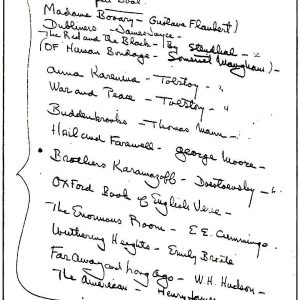 Madame Bovary - Gustave Flaubert)
Dubliners - James Joyce -
The Red and the Black - By Stendhal -
(OF Human Bondage - Somerset Maugham) -
Anna Karenina - Tolstoy -
War and Peace - Tolstoy -
Buddenbrooks - Thomas Mann -
Hail and Farewell - George Moore -
Brothers Karamazoff - Dostoevsky -
OXFord Book of English Verse -
The Enormous Room - E.E. Cummings
Wuthering Heights - Emily Brontë
Far Away and Long Ago - W.H. Hudson -
The American - Henry James